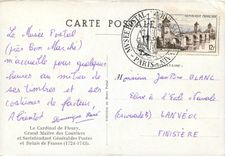 CARTE POSTALE
MUSÉE POSTAL
PARIS
REPUBLIQUE FRANÇAISE
12F
Le Musée Postal
(près Bon Marché)
m'accueille pour quelques
heures au milieu de
ses timbres et ses
costumes de facteurs,
A bientôt
Monsieur Jean BLANC.
Elève à l'École Navale
LANVEOC
FINISTÈRE
Le Cardinal de Fleury,
Grand Maître des Courriers
et Surintendant Général des Postes
et Relais de France (1726-1743).